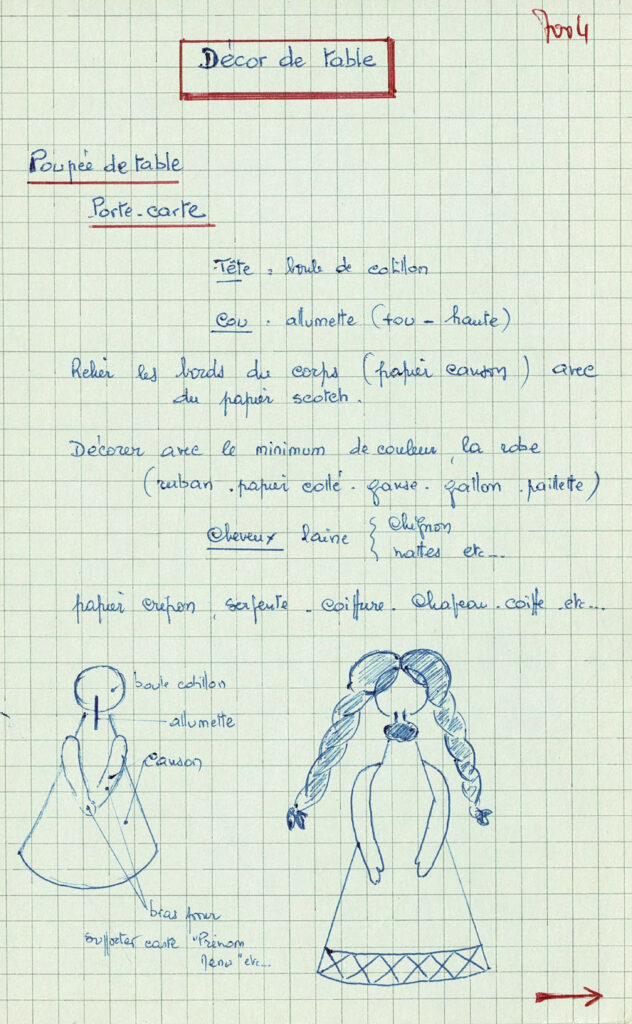 7004
Décor de table
Poupée de table
Porte-carte
Tête = boule de cotillon
Cou . allumette (tou - haute)
Relier les bords du corps (papier canson) avec
du papier scotch.
Décorer avec le minimum de couleur, la robe
(ruban . papier collé . ganse . gallon . paillette)
Cheveux laine { Chignon
nattes etc...
papier crépon, serpente - coiffure - Chapeau - coiffe etc...
boule cotillon
allumette
canson
bras pour
supporter carte "Prénom
Menu" etc...